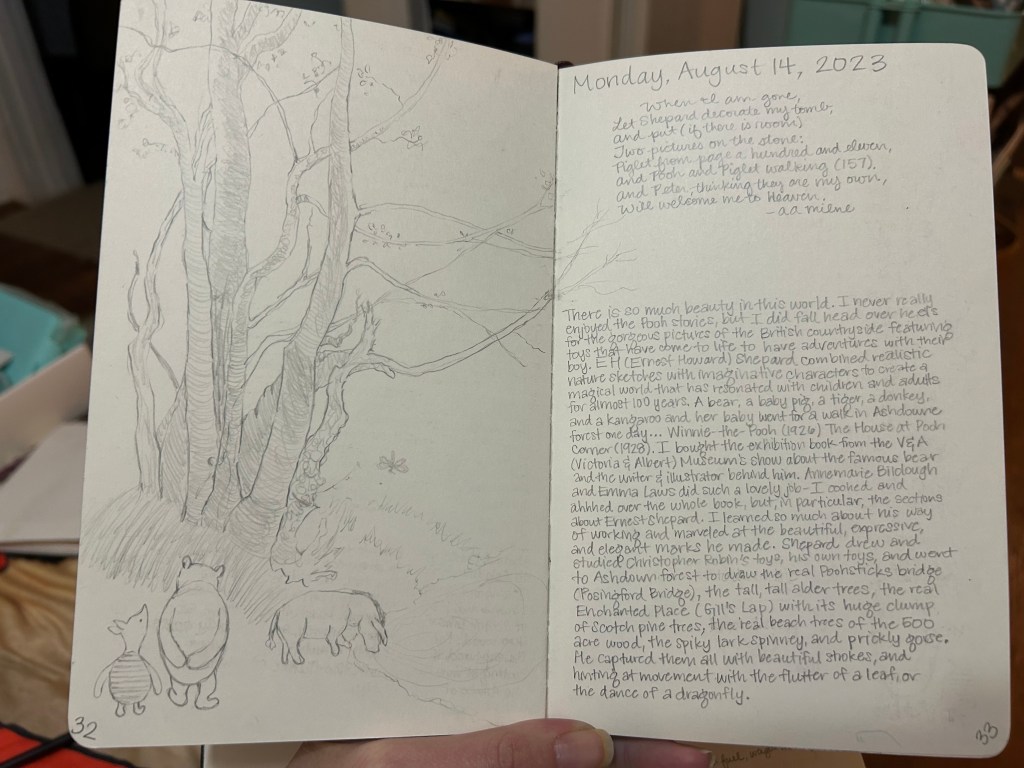 Monday, August 14, 2023
When I am gone,
Let Shepard decorate my tomb,
and put (if there is room)
Two pictures on the stone:
Piglet from page a hundred and eleven,
and Pooh and Piglet walking (157).
and Peter, thinking they are my own,
will welcome me to Heaven.
- aa milne
There is so much beauty in this world. I never really
enjoyed the Pooh stories, but I did fall head over heels
for the gorgeous pictures of the British countryside featuring
toys that have come to life to have adventures with their
boy. EH (Ernest Howard) Shepard combined realistic
nature sketches with imaginative characters to create a
magical world that has resonated with children and adults
for almost 100 years. A bear, a baby pig, a tiger, a donkey,
and a kangaroo and her baby went for a walk in Ashdowne
forest one day... Winnie-the-Pooh (1926) The House at Pooh
Corner (1928). I bought the exhibition book from the V&A
(Victoria & Albert) Museum's show about the famous bear
and the writer & illustrator behind him. Annemarie Bilclough
and Emma Laws did such a lovely job - I oohed and
ahhed over the whole book, but, in particular, the sections
about Ernest Shepard. I learned so much about his way
of working and marveled at the beautiful, expressive,
and elegant marks he made. Shepard drew and
studied Christopher Robin's toys, his own toys, and went
to Ashdown forest to draw the real Poohsticks bridge
(Posingford Bridge), the tall, tall alder trees, the real
Enchanted Place (Gill's Lap) with its huge clump
of Scotch pine trees, the real beach trees of the 500
acre wood, the spiky lark spinney, and prickly gorse.
He captured them all with beautiful stokes, and
hinting at movement with the flutter of a leaf, or
the dance of a dragonfly.
32
33